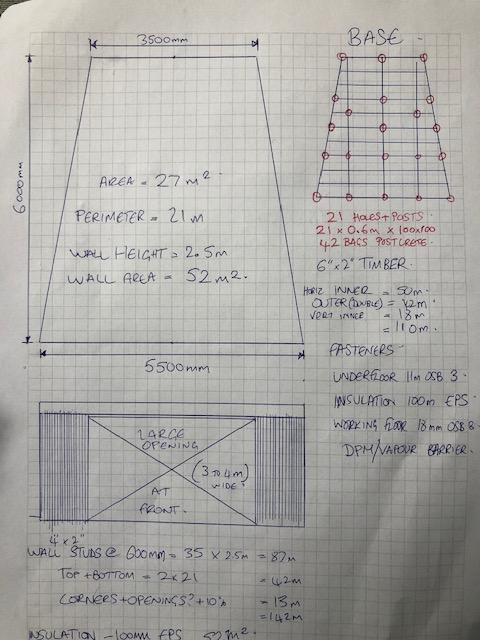 3500mm
6000mm
AREA = 27 m².
PERIMETER = 21 m
WALL HEIGHT = 2.5m
WALL AREA = 52 m².
5500mm
BASE
21 HOLES + POSTS.
21 x 0.6m x 100x100
42 BAGS POSTCRETE.
6"x2" TIMBER.
HORIZ INNER = 50m.
OUTER (DOUBLE) = 42m.
VERT INNER = 18m
= 110m.
FASTENERS.
UNDERFLOOR 11m OSB 3.
INSULATION 100m EPS.
WORKING FLOOR 18mm OSB 3
DPM/VAPOUR BARRIER.
LARGE
OPENING
(3 TO 4m)
WIDE?
AT
FRONT.
4"x2"
WALL STUDS @ 600mm = 35 x 2.5m = 87m
TOP + BOTTOM = 2x21 = 42m
CORNERS + OPENINGS? +10% = 13m
= 142m
INSULATION - 100mm EPS 52m².